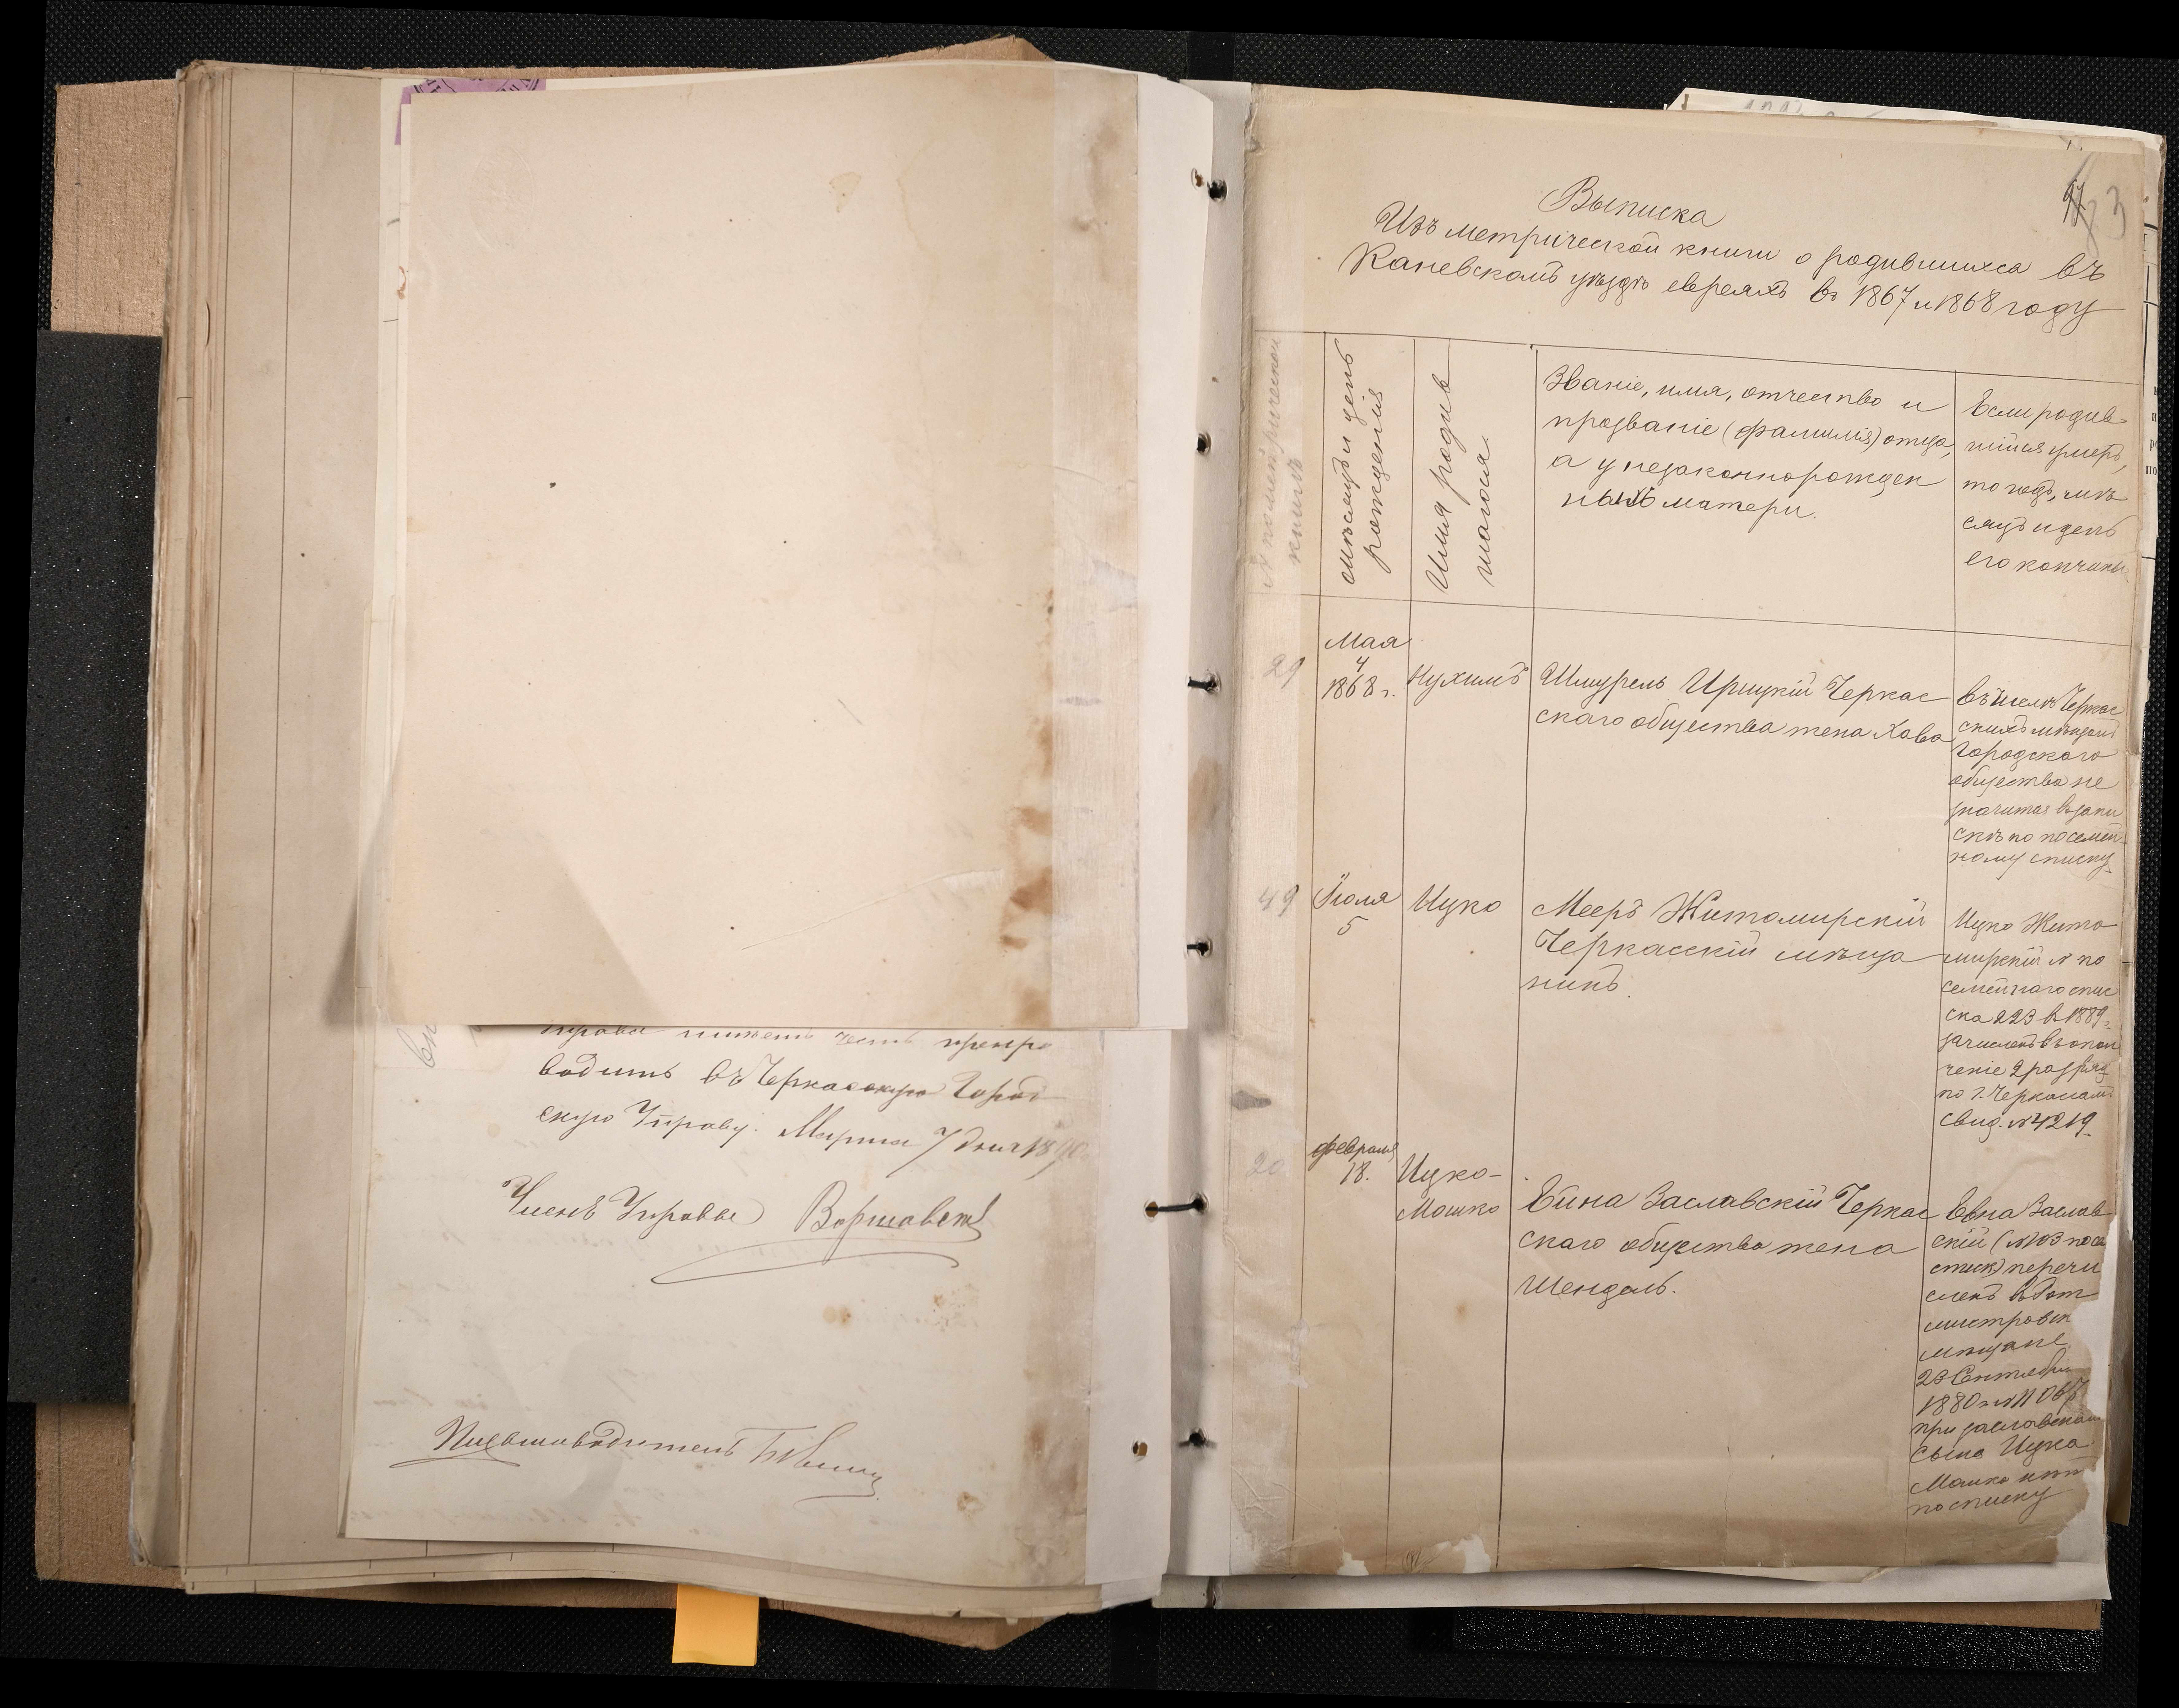 Управа имѣетъ честь препро
водить въ Черкасскую Город
скую Управу. Марта 7 дня 1890
Членъ Управы
Письмоводитель
3
Выписка
Изъ метрической книги о родившихся въ
Каневскомъ уѣздѣ евреяхъ въ 1867 и 1868 году
№ по метрической
книгѣ
мѣсяцъ и день
рожденія
Имя родив
шагося
Званіе, имя, отчество и
прозваніе (фамилія) отца,
а у незаконнорожден
ныхъ матери.
Если родив
шійся умеръ,
то годъ, мѣ
сяцъ и день
его кончины
29
Мая
4
1868 г.
Нухимъ
Шмурель Ирицкій Черкас
скаго общества жена Хава
въ числѣ Черкас
скихъ мѣщанъ
Городского
общества не
значится въ запи
скѣ по посемей
ному списку
49
Іюля
5
Ицко
Мееръ Житомирскій
Черкасскій мѣща
нинъ.
Ицко Жито
мирскій № по
семейнаго спис
ска 223 въ 1889 г.
зачисленъ въ опол
ченіе 2 разряд
по г. Черкасамъ
свид. № 4219
20
февраля
18.
Ицко-
Мошко
Ейна Заславскій Черкас
скаго общества жена
Шендель.
Евна Заслав
скій (№ 103 посе
спис) перечи
сленъ въ
мѣщане
23 Сентября
1880 г. №
при заславскомъ
сына Ицка
Мошка нѣтъ
по списку